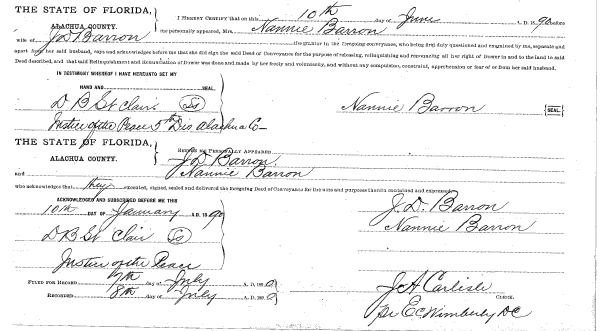 THE STATE OF FLORIDA,
ALACHUA COUNTY.
I HEREBY CERTIFY that on this 10th day of June A. D. 1890 before
me personally appeared, Mrs. Nannie Barron
wife of J. D. Barron the grantor in the foregoing conveyance, who being first duly questioned and examined by me, separate and
apart from her said husband, says and acknowledges before me that she did sign the said Deed of Conveyance for the purpose of releasing, relinquishing and renouncing all her right of Dower in and to the land in said
Deed described, and that said Relinquishment and Renunciation of Dower was done and made by her freely and voluntarily, and without any compulsion, constraint, apprehension or fear of or from her said husband.
IN TESTIMONY WHEREOF I HAVE HEREUNTO SET MY
HAND AND SEAL.
D B St Clair Nannie Barron SEAL.
Justice of the Peace 5th Dis Alachua Co
THE STATE OF FLORIDA,
ALACHUA COUNTY.
BEFORE ME PERSONALLY APPEARED
J. D. Barron,
and Nannie Barron
who acknowledges that they executed, signed, sealed and delivered the foregoing Deed of Conveyance for the uses and purposes therein contained and expressed.
ACKNOWLEDGED AND SUBSCRIBED BEFORE ME THIS
10th DAY OF January A. D. 1890
J. D. Barron
Nannie Barron
D B St Clair
Justice of the Peace
FILED FOR RECORD 7th day of July A. D. 1890
RECORDED 8th day of July A. D. 1890
J A Carlisle
CLERK.
pr E C Wimberly DC